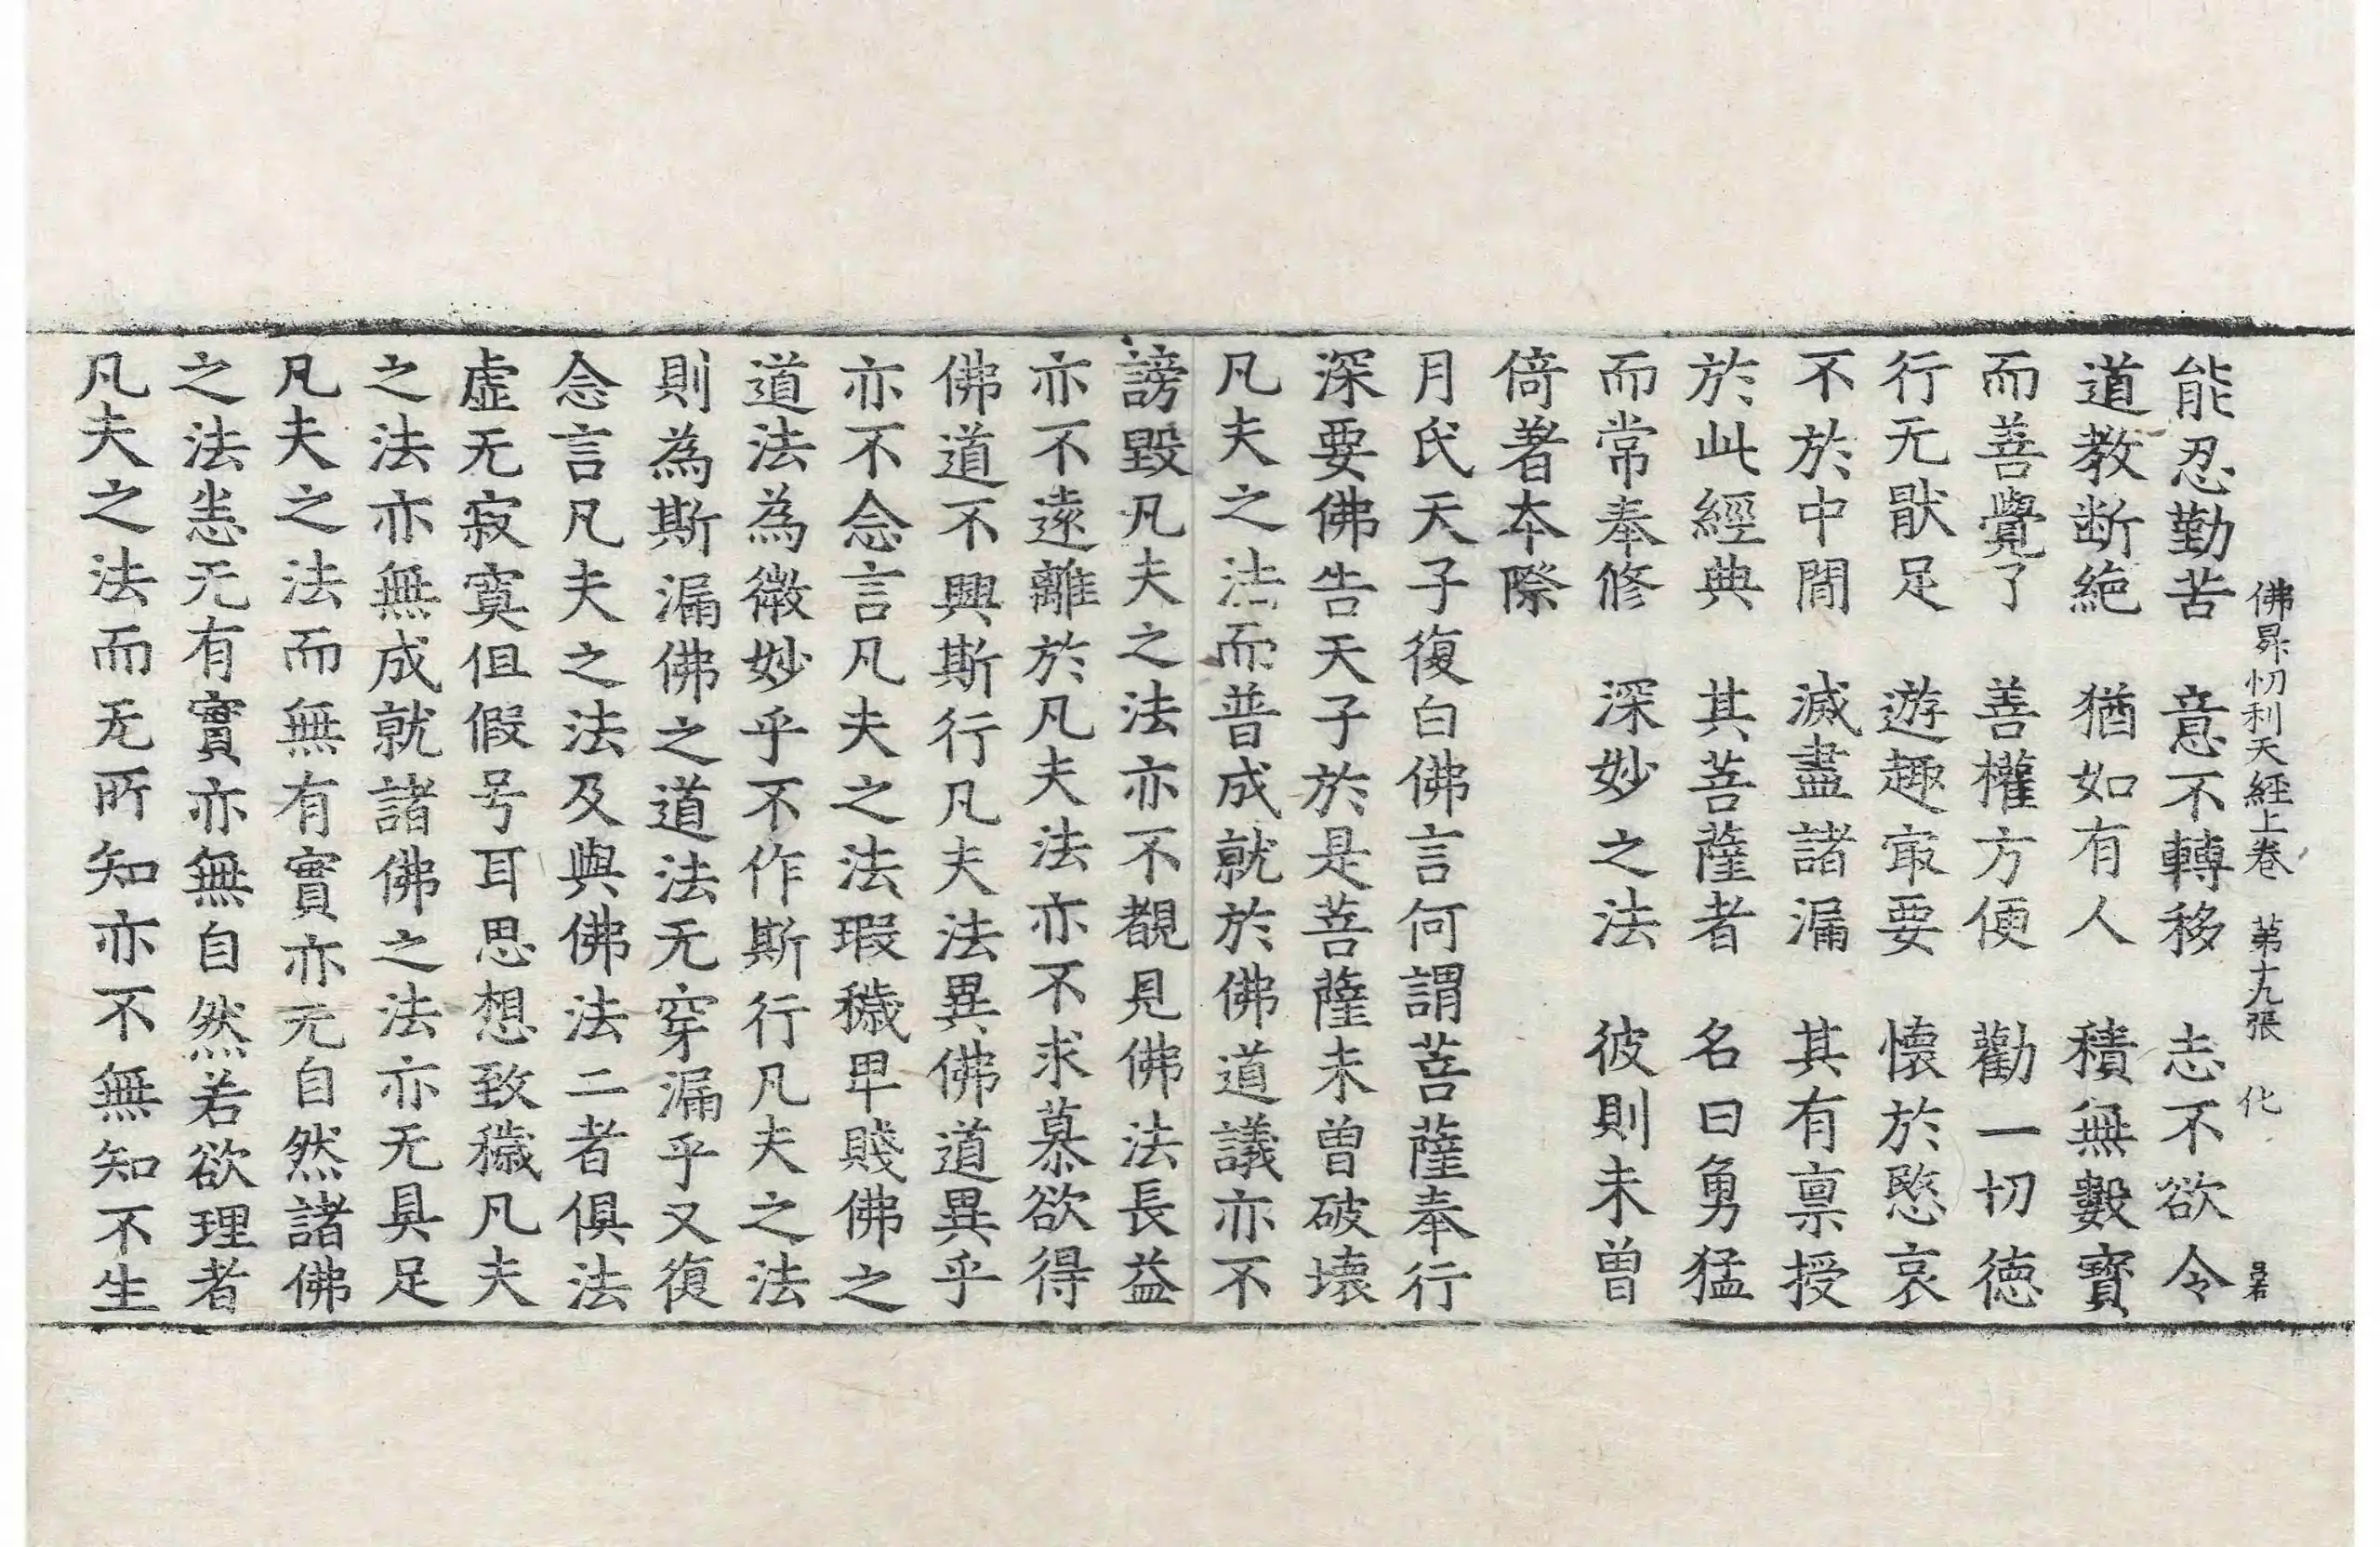 佛昇忉利天經上卷　第十九張　化
能忍勤苦　意不轉移　志不欲令
道教断絶　猶如有人　積無數寳
而善覺了　善權方便　勸一切德
行无猒足　遊趣㝡要　懷於愍哀
不於中閒　滅盡諸漏　其有禀授
於此經典　其菩薩者　名曰勇猛
而常奉修　深妙之法　彼則未曾
倚著本際
月氏天子復白佛言何謂菩薩奉行
深要佛告天子於是菩薩未曾破壊
凡夫之法而普成就於佛道議亦不
謗毀凡夫之法亦不覩見佛法長益
亦不遠離於凡夫法亦不求慕欲得
佛道不興斯行凡夫法異佛道異乎
亦不念言凡夫之法瑕穢卑賤佛之
道法為微妙乎不作斯行凡夫之法
則為斯漏佛之道法无穿漏乎又復
念言凡夫之法及與佛法二者俱法
虚无寂寞但假号耳思想致穢凡夫
之法亦無成就諸佛之法亦无具足
凡夫之法而無有實亦无自然諸佛
之法恙无有實亦無自然若欲理者
凡夫之法而无所知亦不無知不生